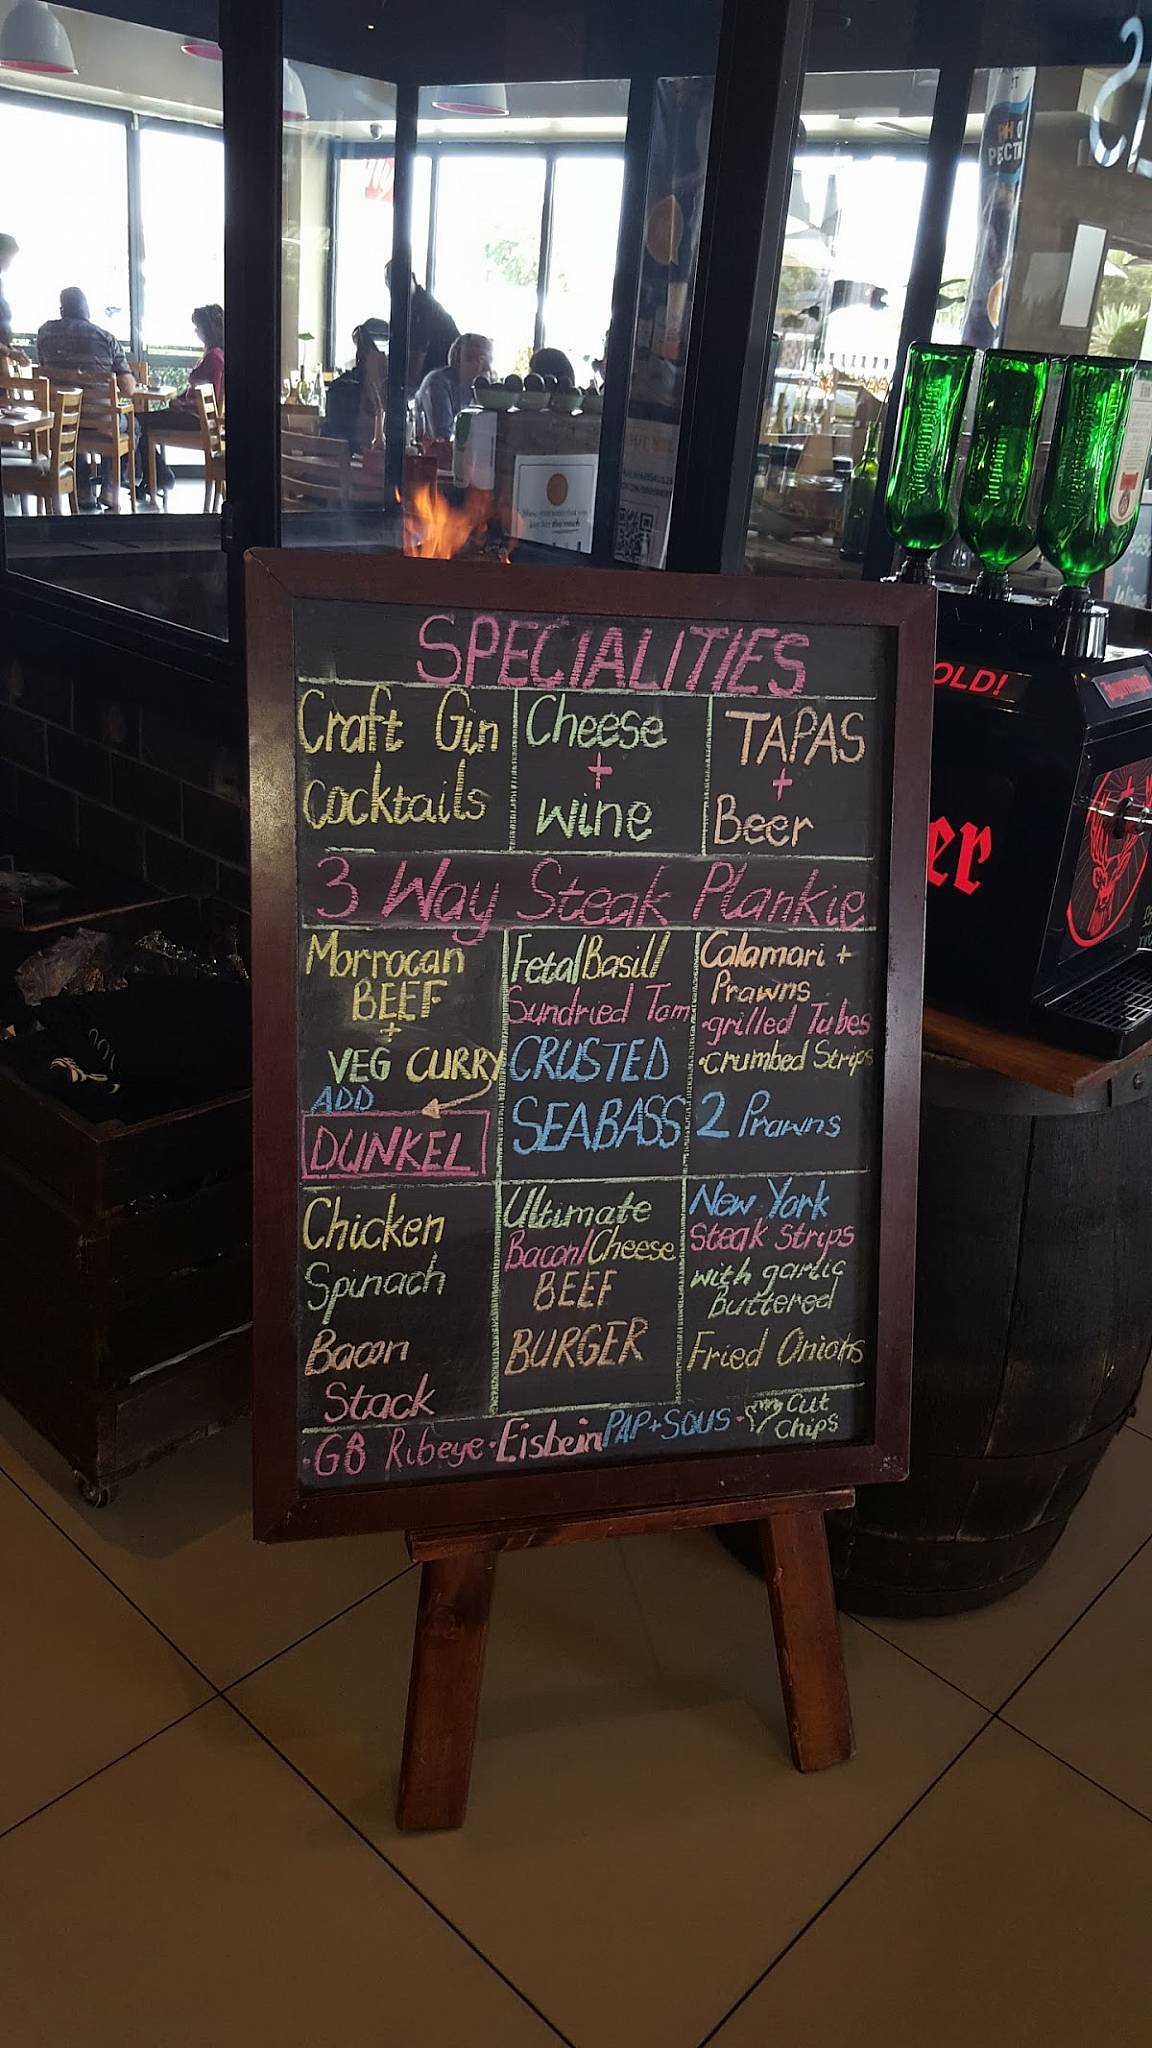 SPECIALITIES
Craft Gin
Cocktails
Cheese
+
Wine
TAPAS
+
Beer
3 Way Steak Plankie
Morrocan
BEEF
+
VEG CURRY
ADD
DUNKEL
Feta/Basil/
Sundried Tom
CRUSTED
SEABASS
Calamari +
Prawns
·grilled Tubes
·crumbed Strips
2 Prawns
Chicken
Spinach
Bacon
Stack
Ultimate
Bacon/Cheese
BEEF
BURGER
New York
Steak Strips
with garlic
Buttered
Fried Onions
·GB Ribeye·Eisbein PAP+SOUS·
Cut
Chips
OLD!
er
PECTN